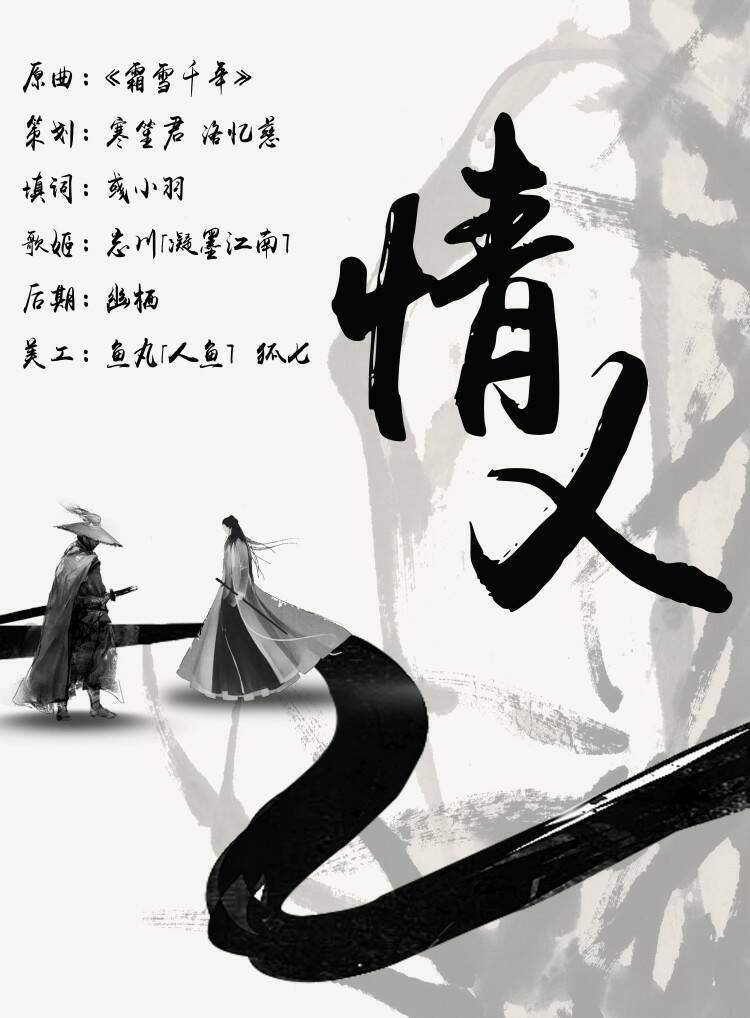 原曲：《霜雪千年》
策划：寒笙君 洛忆慈
填词：彧小羽
歌姬：忘川「凝墨江南」
后期：幽栖
美工：鱼丸「人鱼」 狐七
情义